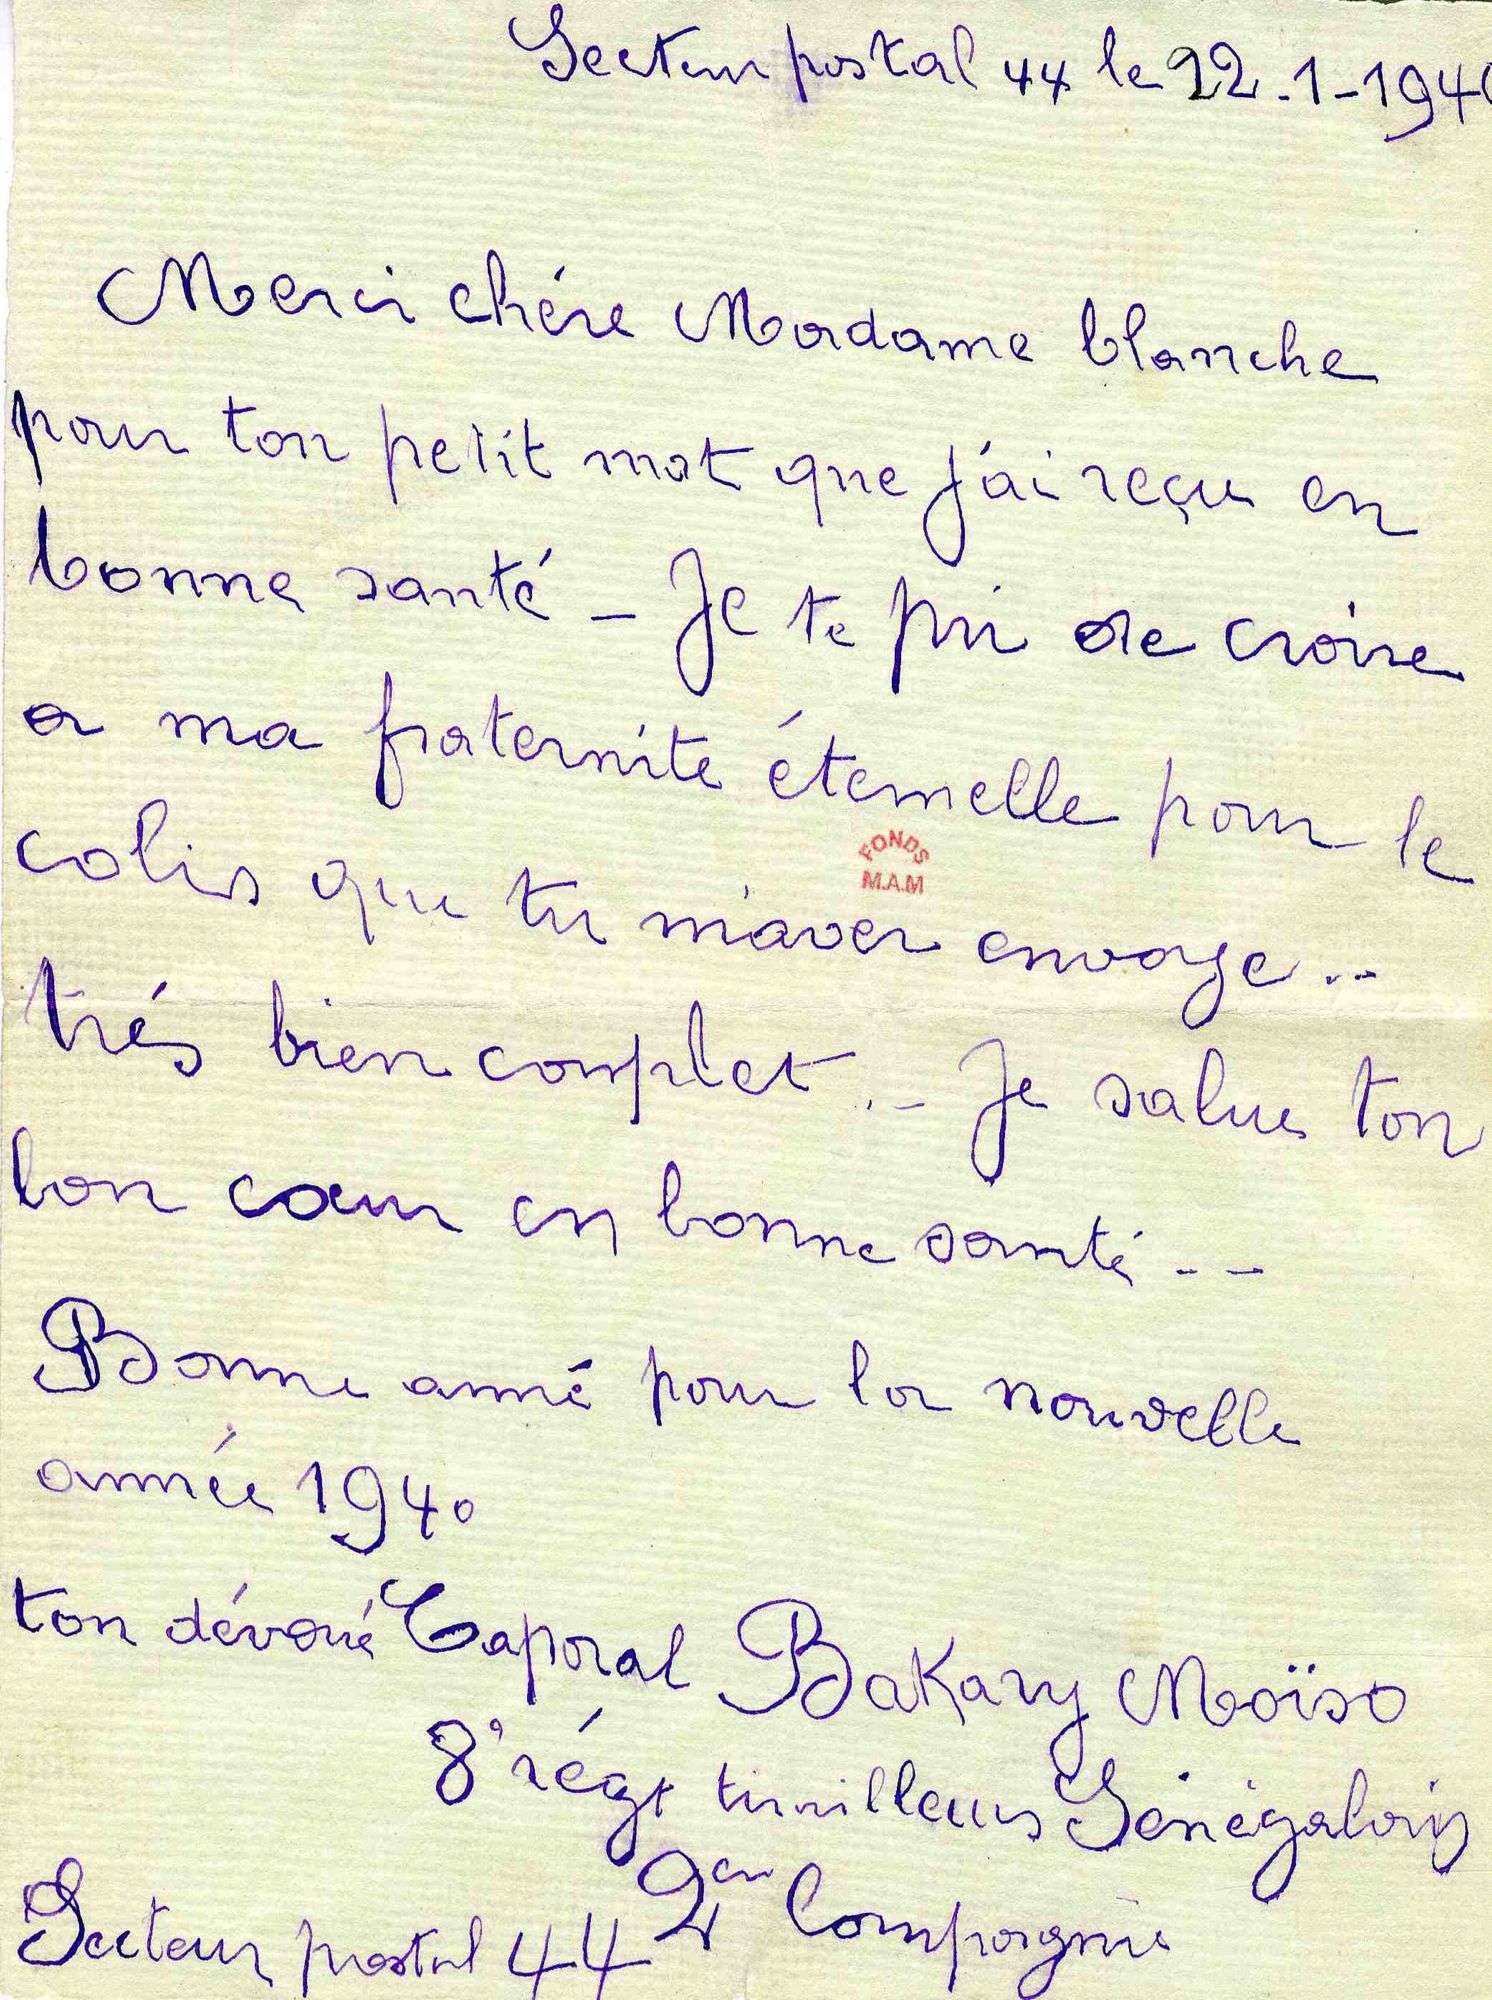 Secteur postal 44 le 22.1-1940
Merci chére Madame blanche
pour ton petit mot que j'ai reçu en
bonne santé - Je te pri de croire
a ma fraternité éternelle pour le
colis que tu m'aver envoye..
trés bien complet.- Je salue ton
bon cœur en bonne santé --
Bonne anné pour la nouvelle
année 1940
ton dévoué Caporal Bakary Moïso
8e régt tirailleurs Sénégalais
Secteur postal 44 2em Compagnie
FONDS
M.A.M